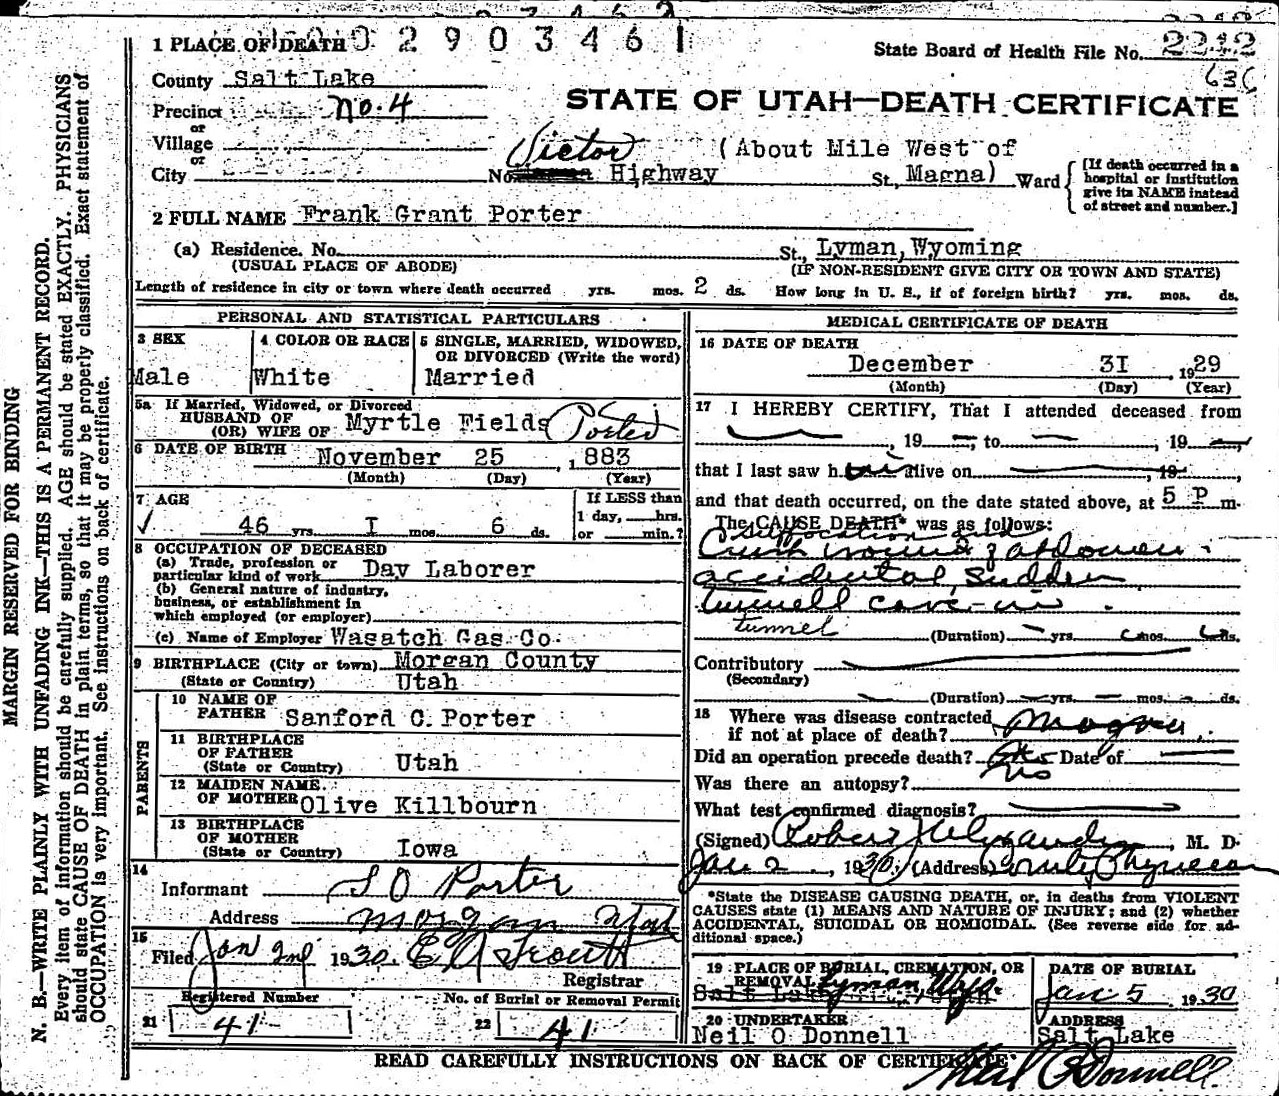 02903461
1 PLACE OF DEATH
State Board of Health File No. 2212
636
County Salt Lake
STATE OF UTAH—DEATH CERTIFICATE
Precinct No. 4
or
Village
or
City
Victor (About Mile West of
No. Highway St., Magna) Ward
[If death occurred in a
hospital or institution
give its NAME instead
of street and number.]
2 FULL NAME Frank Grant Porter
(a) Residence. No. St., Lyman, Wyoming
(USUAL PLACE OF ABODE) (IF NON-RESIDENT GIVE CITY OR TOWN AND STATE)
Length of residence in city or town where death occurred yrs. mos. 2 ds. How long in U. S., if of foreign birth? yrs. mos. ds.
PERSONAL AND STATISTICAL PARTICULARS
3 SEX 4 COLOR OR RACE 5 SINGLE, MARRIED, WIDOWED,
OR DIVORCED (Write the word)
Male White Married
5a If Married, Widowed, or Divorced
HUSBAND OF
(OR) WIFE OF Myrtle Fields (Porter)
6 DATE OF BIRTH November 25, 1883
(Month) (Day) (Year)
7 AGE If LESS than
1 day, hrs.
46 yrs. I mos. 6 ds. or min.?
8 OCCUPATION OF DECEASED
(a) Trade, profession or
particular kind of work Day Laborer
(b) General nature of industry,
business, or establishment in
which employed (or employer)
(c) Name of Employer Wasatch Gas Co.
9 BIRTHPLACE (City or town) Morgan County
(State or Country) Utah
PARENTS
10 NAME OF
FATHER Sanford C. Porter
11 BIRTHPLACE
OF FATHER
(State or Country) Utah
12 MAIDEN NAME
OF MOTHER Olive Killbourn
13 BIRTHPLACE
OF MOTHER
(State or Country) Iowa
14
Informant S O Porter
Address Morgan Utah
15
Filed Jan 2nd 1930. E A Trout
Registrar
Registered Number No. of Burial or Removal Permit
21 41 22 41
MEDICAL CERTIFICATE OF DEATH
16 DATE OF DEATH
December 3I, 1929
(Month) (Day) (Year)
17 I HEREBY CERTIFY, That I attended deceased from
, 19 ; to , 19 ,
that I last saw h alive on , 19 ,
and that death occurred, on the date stated above, at 5 P m.
The CAUSE DEATH* was as follows:
Suffocation and
Crush wound of abdomen.
accidental, Sudden
tunnell cave-in.
tunnel (Duration) yrs. mos. ds.
Contributory
(Secondary)
(Duration) yrs. mos. ds.
18 Where was disease contracted
if not at place of death? Magna.
Did an operation precede death? No Date of
Was there an autopsy? No
What test confirmed diagnosis?
(Signed) Robert J Alexander, M. D.
Jan 2, 1930 (Address) County Physician
*State the DISEASE CAUSING DEATH, or, in deaths from VIOLENT
CAUSES state (1) MEANS AND NATURE OF INJURY; and (2) whether
ACCIDENTAL, SUICIDAL OR HOMICIDAL. (See reverse side for ad-
ditional space.)
19 PLACE OF BURIAL, CREMATION, OR
REMOVAL Lyman Wyo.
Salt Lake City, Utah.
DATE OF BURIAL
Jan 5 1930
20 UNDERTAKER
Neil O Donnell
ADDRESS
Salt Lake
READ CAREFULLY INSTRUCTIONS ON BACK OF CERTIFICATE
Neil O'Donnell
MARGIN RESERVED FOR BINDING
N. B.—WRITE PLAINLY WITH UNFADING INK—THIS IS A PERMANENT RECORD.
Every item of information should be carefully supplied. AGE should be stated EXACTLY. PHYSICIANS
should state CAUSE OF DEATH in plain terms, so that it may be properly classified. Exact statement of
OCCUPATION is very important. See instructions on back of certificate.